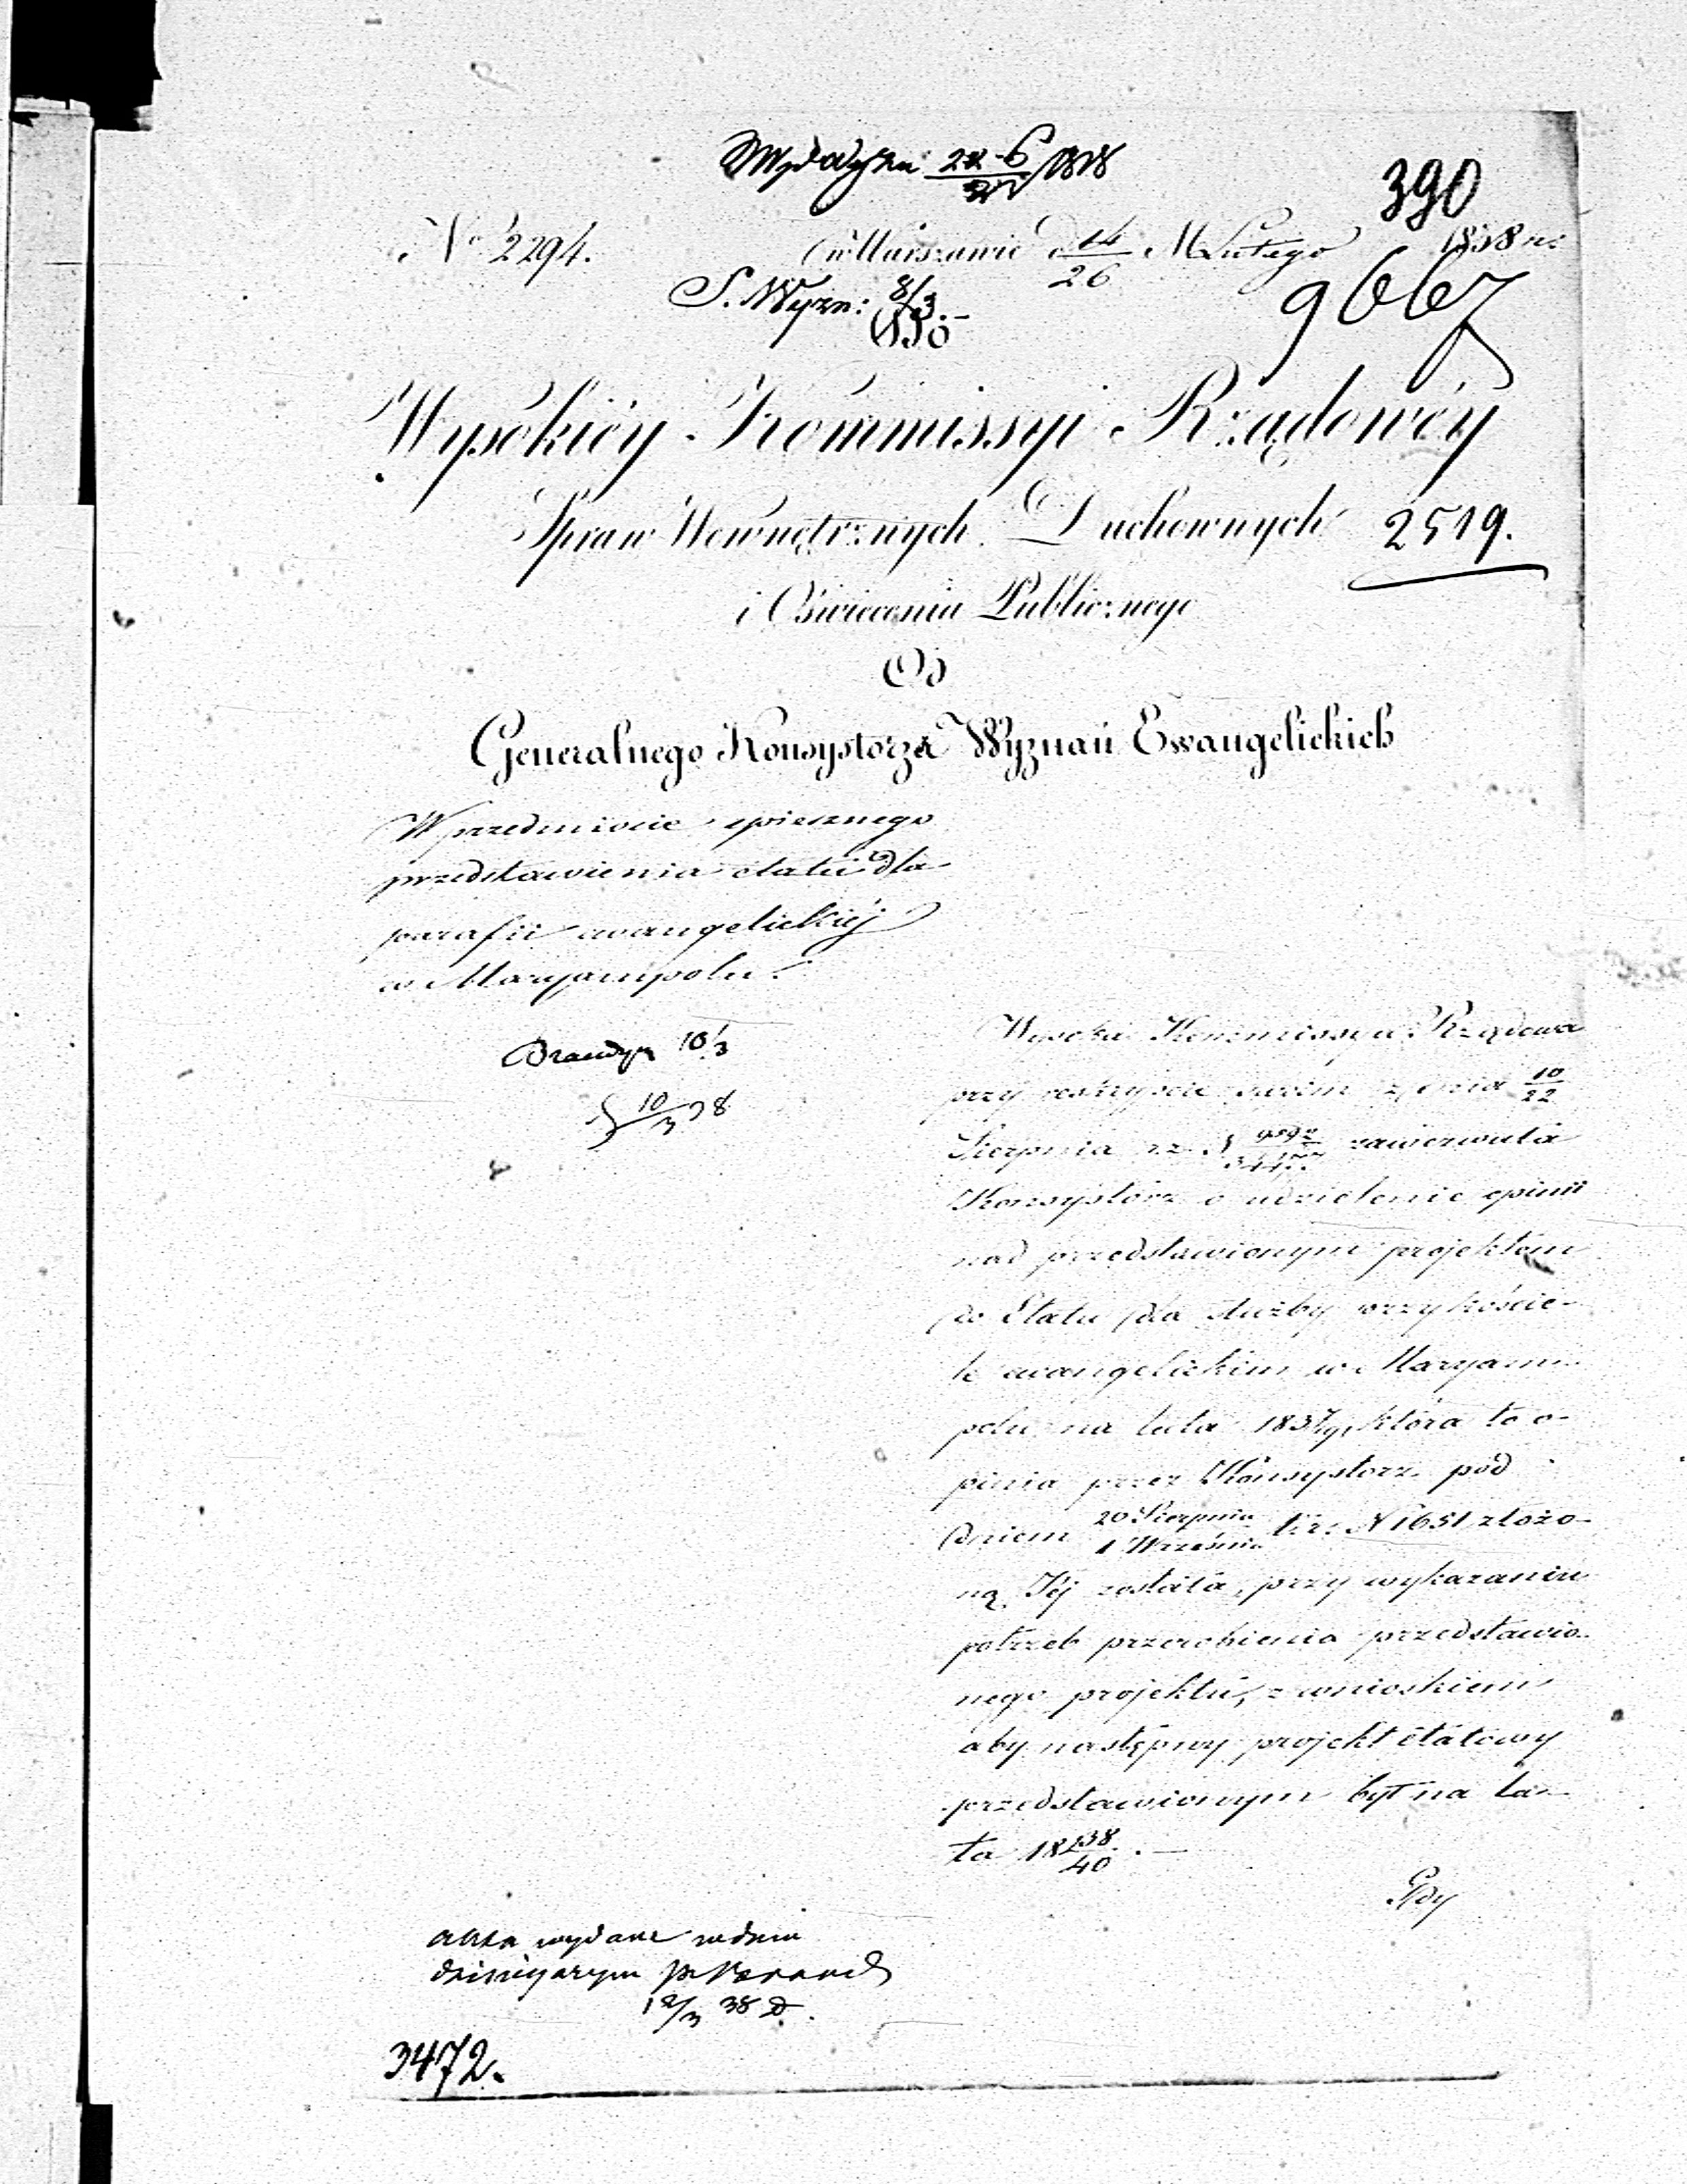 22-6 1838
390
No 2294.
w Warszawie d 14/26 M Lutego 1838 r:
S. Wyzn: 8/3.
9667
Do
Wysokiéy Kommissyi Rządowéy
Spraw Wewnętrznych Duchownych
2519.
i Oświecenia Publicznego
Od
Generalnego Konsystorza Wyznań Ewangelickich
W przedmiocie spiesznego
przedstawienia etatu dla
parafii ewangelickiéj
w Maryampolu.
10/3
10/3 38
Wysoka Kommissya Rządowa
przy reskrypcie swoim z dnia 10/22
Sierpnia r.z. N zawezwała
Konsystorz o udzielenie opinii
nad przedstawionym projektem
do Etatu dla służby przy koście-
le ewangelickim w Maryam-
polu na lata 1837/9, która to o-
pinia przez Konsystorz pod
dniem 20 Sierpnia/1 Września t.r. N 1651 złożo-
ną Jéj została, przy wykazaniu
potrzeb przerobienia przedstawio-
nego projektu, z wnioskiem
aby następny projekt etatowy
przedstawionym był na la-
ta 1838/40. —
Gdy
akta wydane w dniu
dzisiejszym
12/3 38
3472.